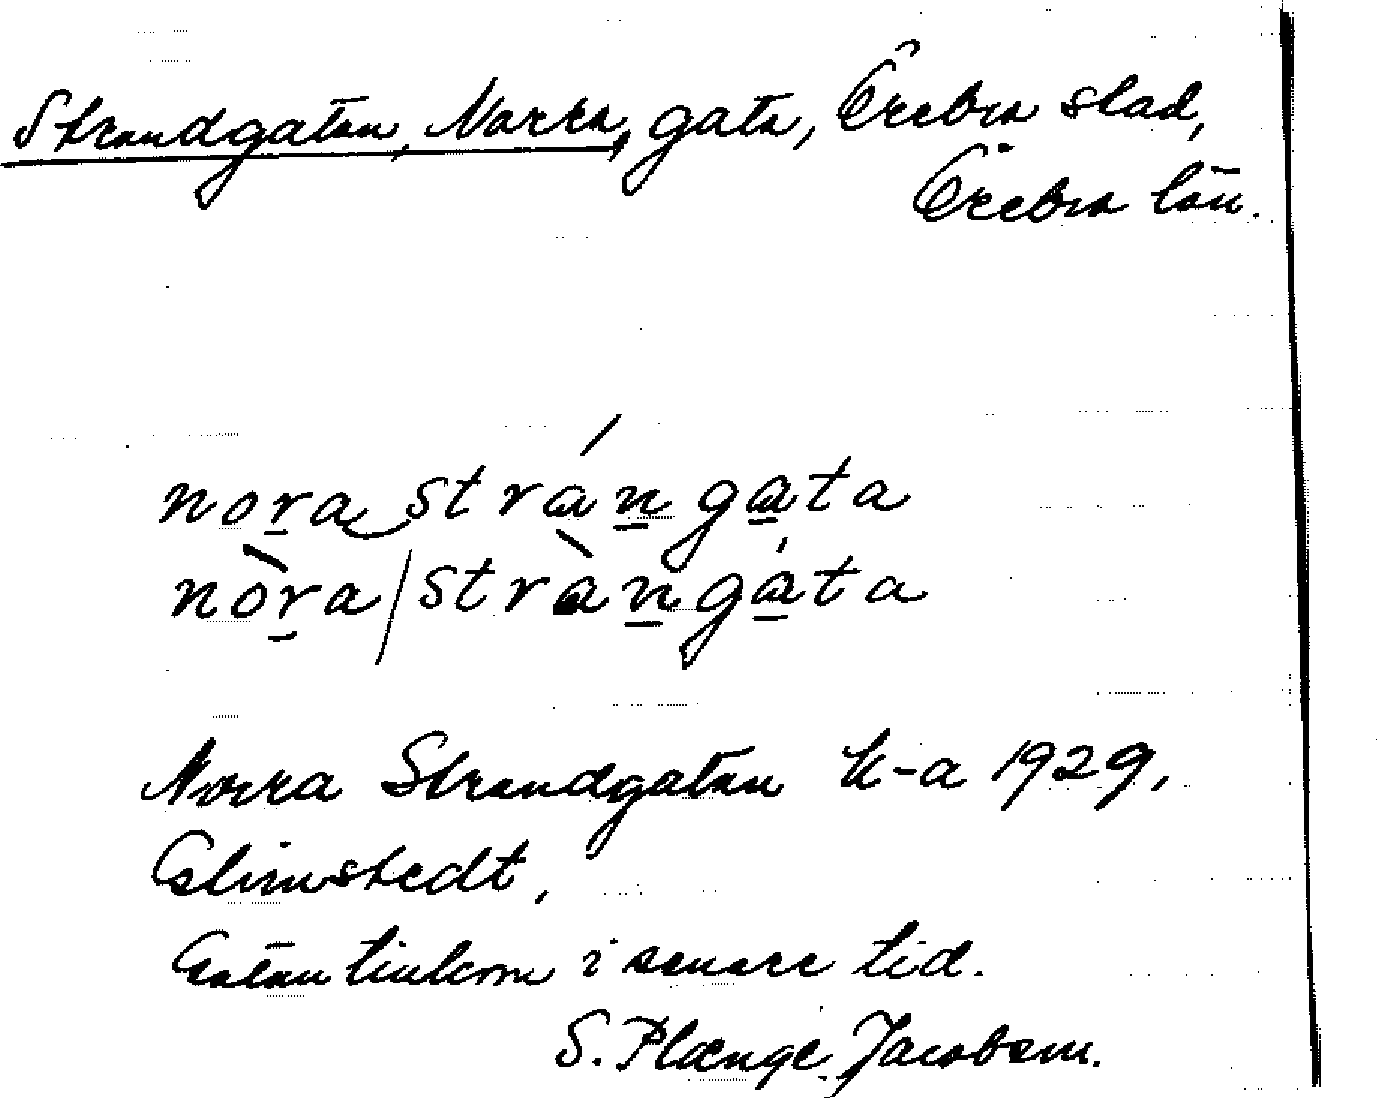 Strandgatan, Norra, gata, Örebro stad,
Örebro län.
nora strán gata
nòra / stràn gáta
Norra Strandgatan k-a 1929,
Glimstedt,
Gatan tillkom i senare tid.
S. Plænge Jacobson.